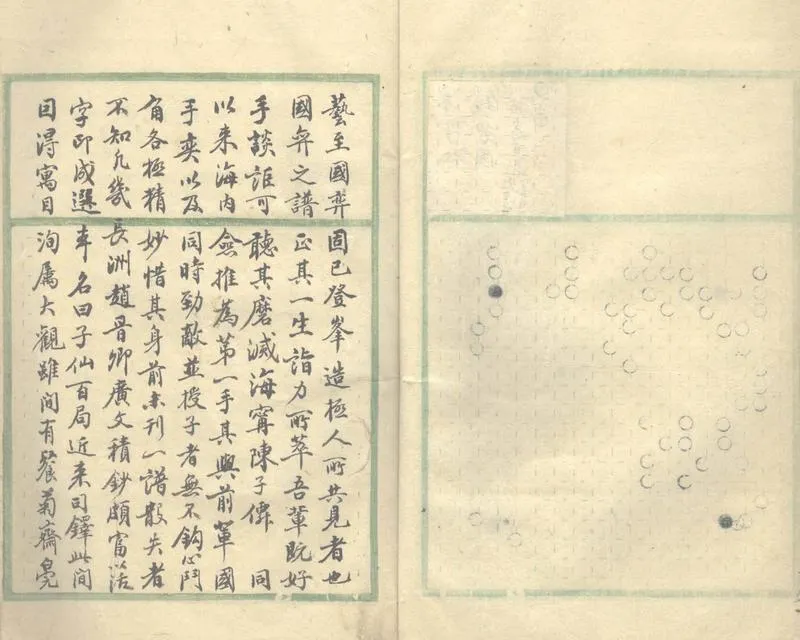 藝至國弈固已登峯造極人所共見者也
國弈之譜正其一生詣力所萃吾輩既好
手談詎可聽其磨滅海甯陳子僊 同
以来海内僉推為第一手其與前輩國
手奕以及同時勁敵並授子者無不鈎心鬥
角各極精妙惜其身前未刊一譜散失者
不知凡幾長洲趙晉卿廣文積鈔頗富以活
字印成選本名曰子仙百局近来司鐸此間
因得寓目洵屬大觀雖間有餐菊齋